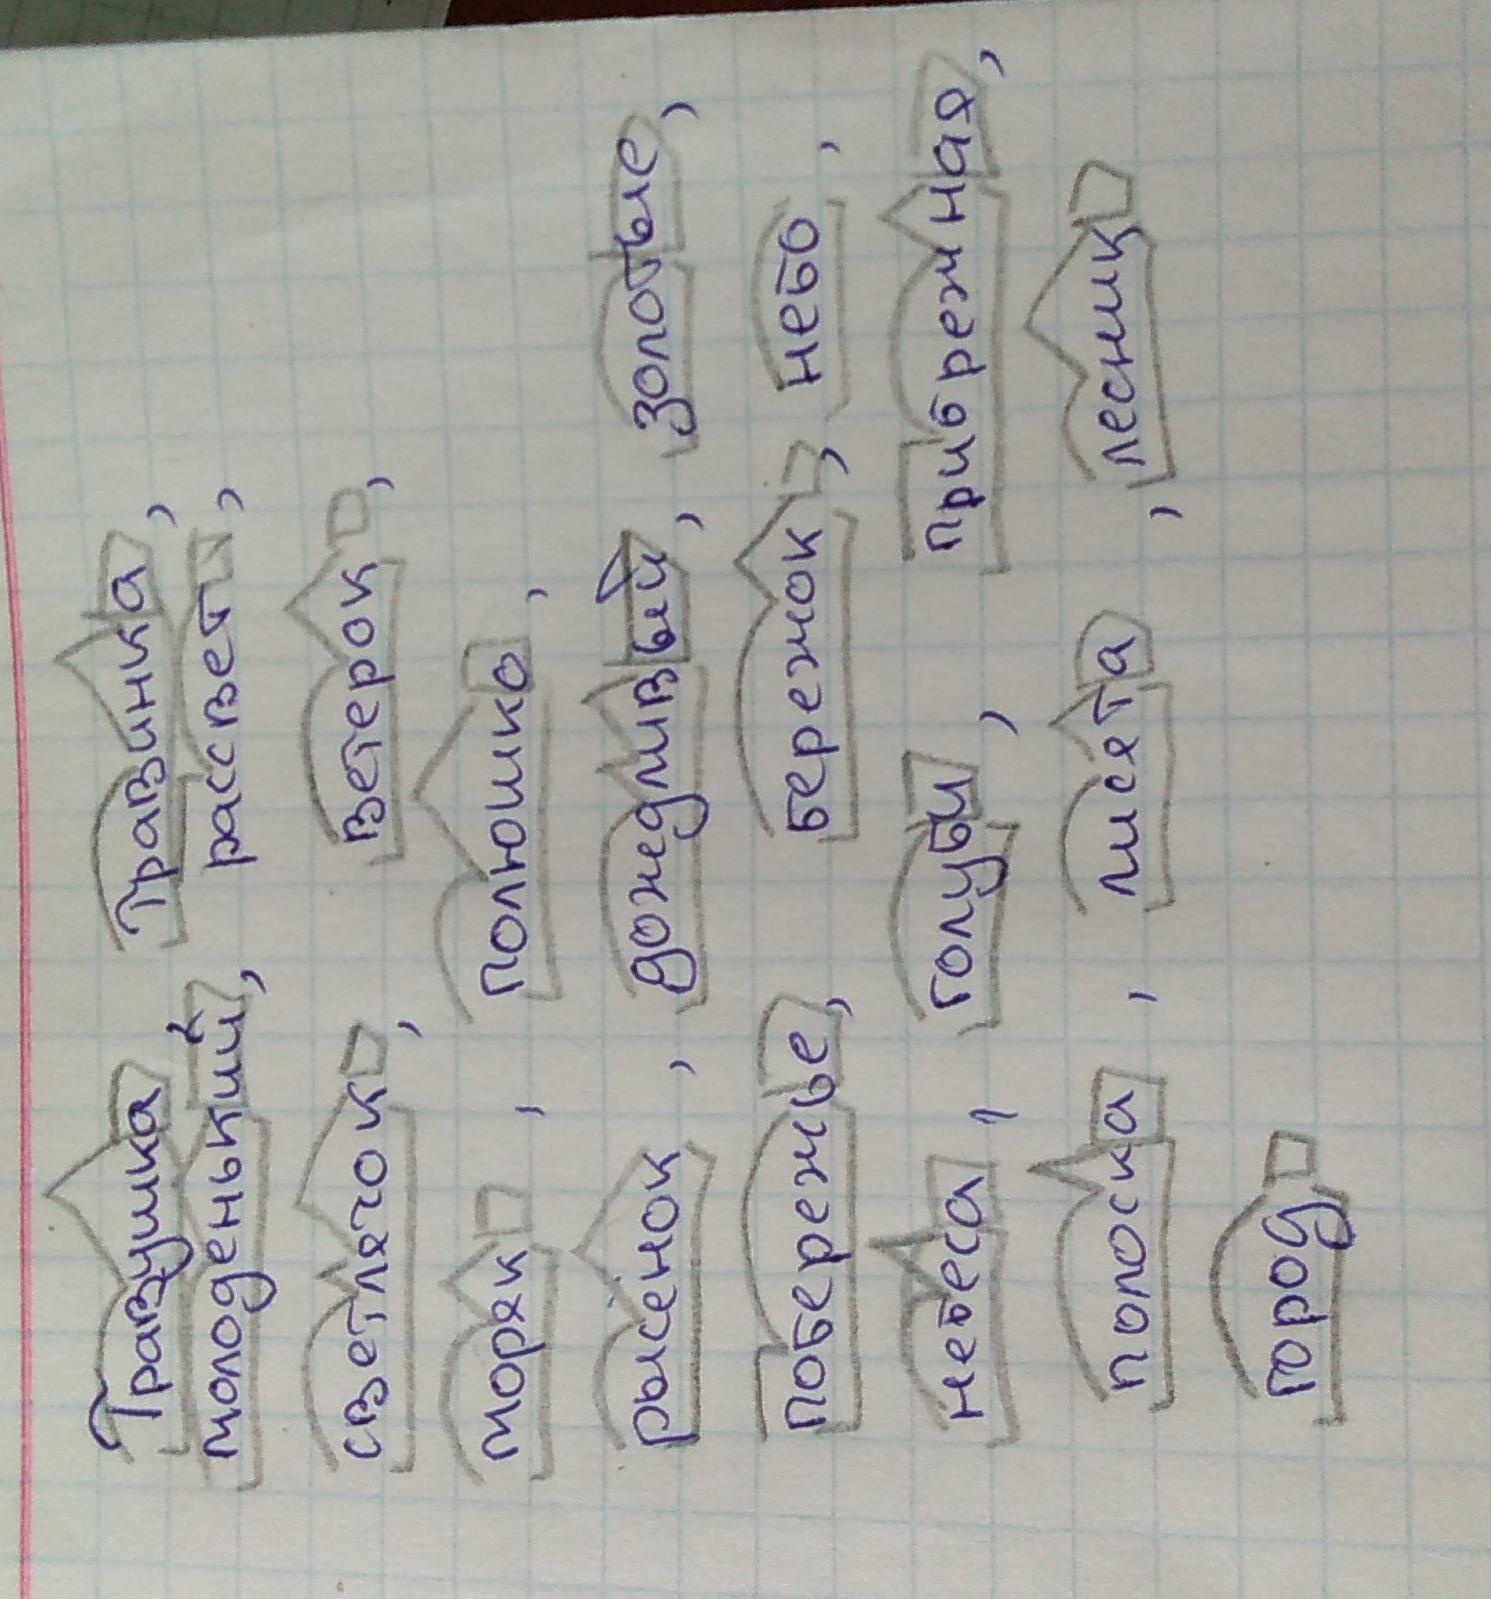 Травушка Травинка,
молоденький, рассвет,
светлячок, ветерок,
моряк, полюшко,
рысёнок, дождливый, золотые,
побережье, бережок, небо,
небеса, голуби, прибрежная,
полоска, лисёта, лесник
город